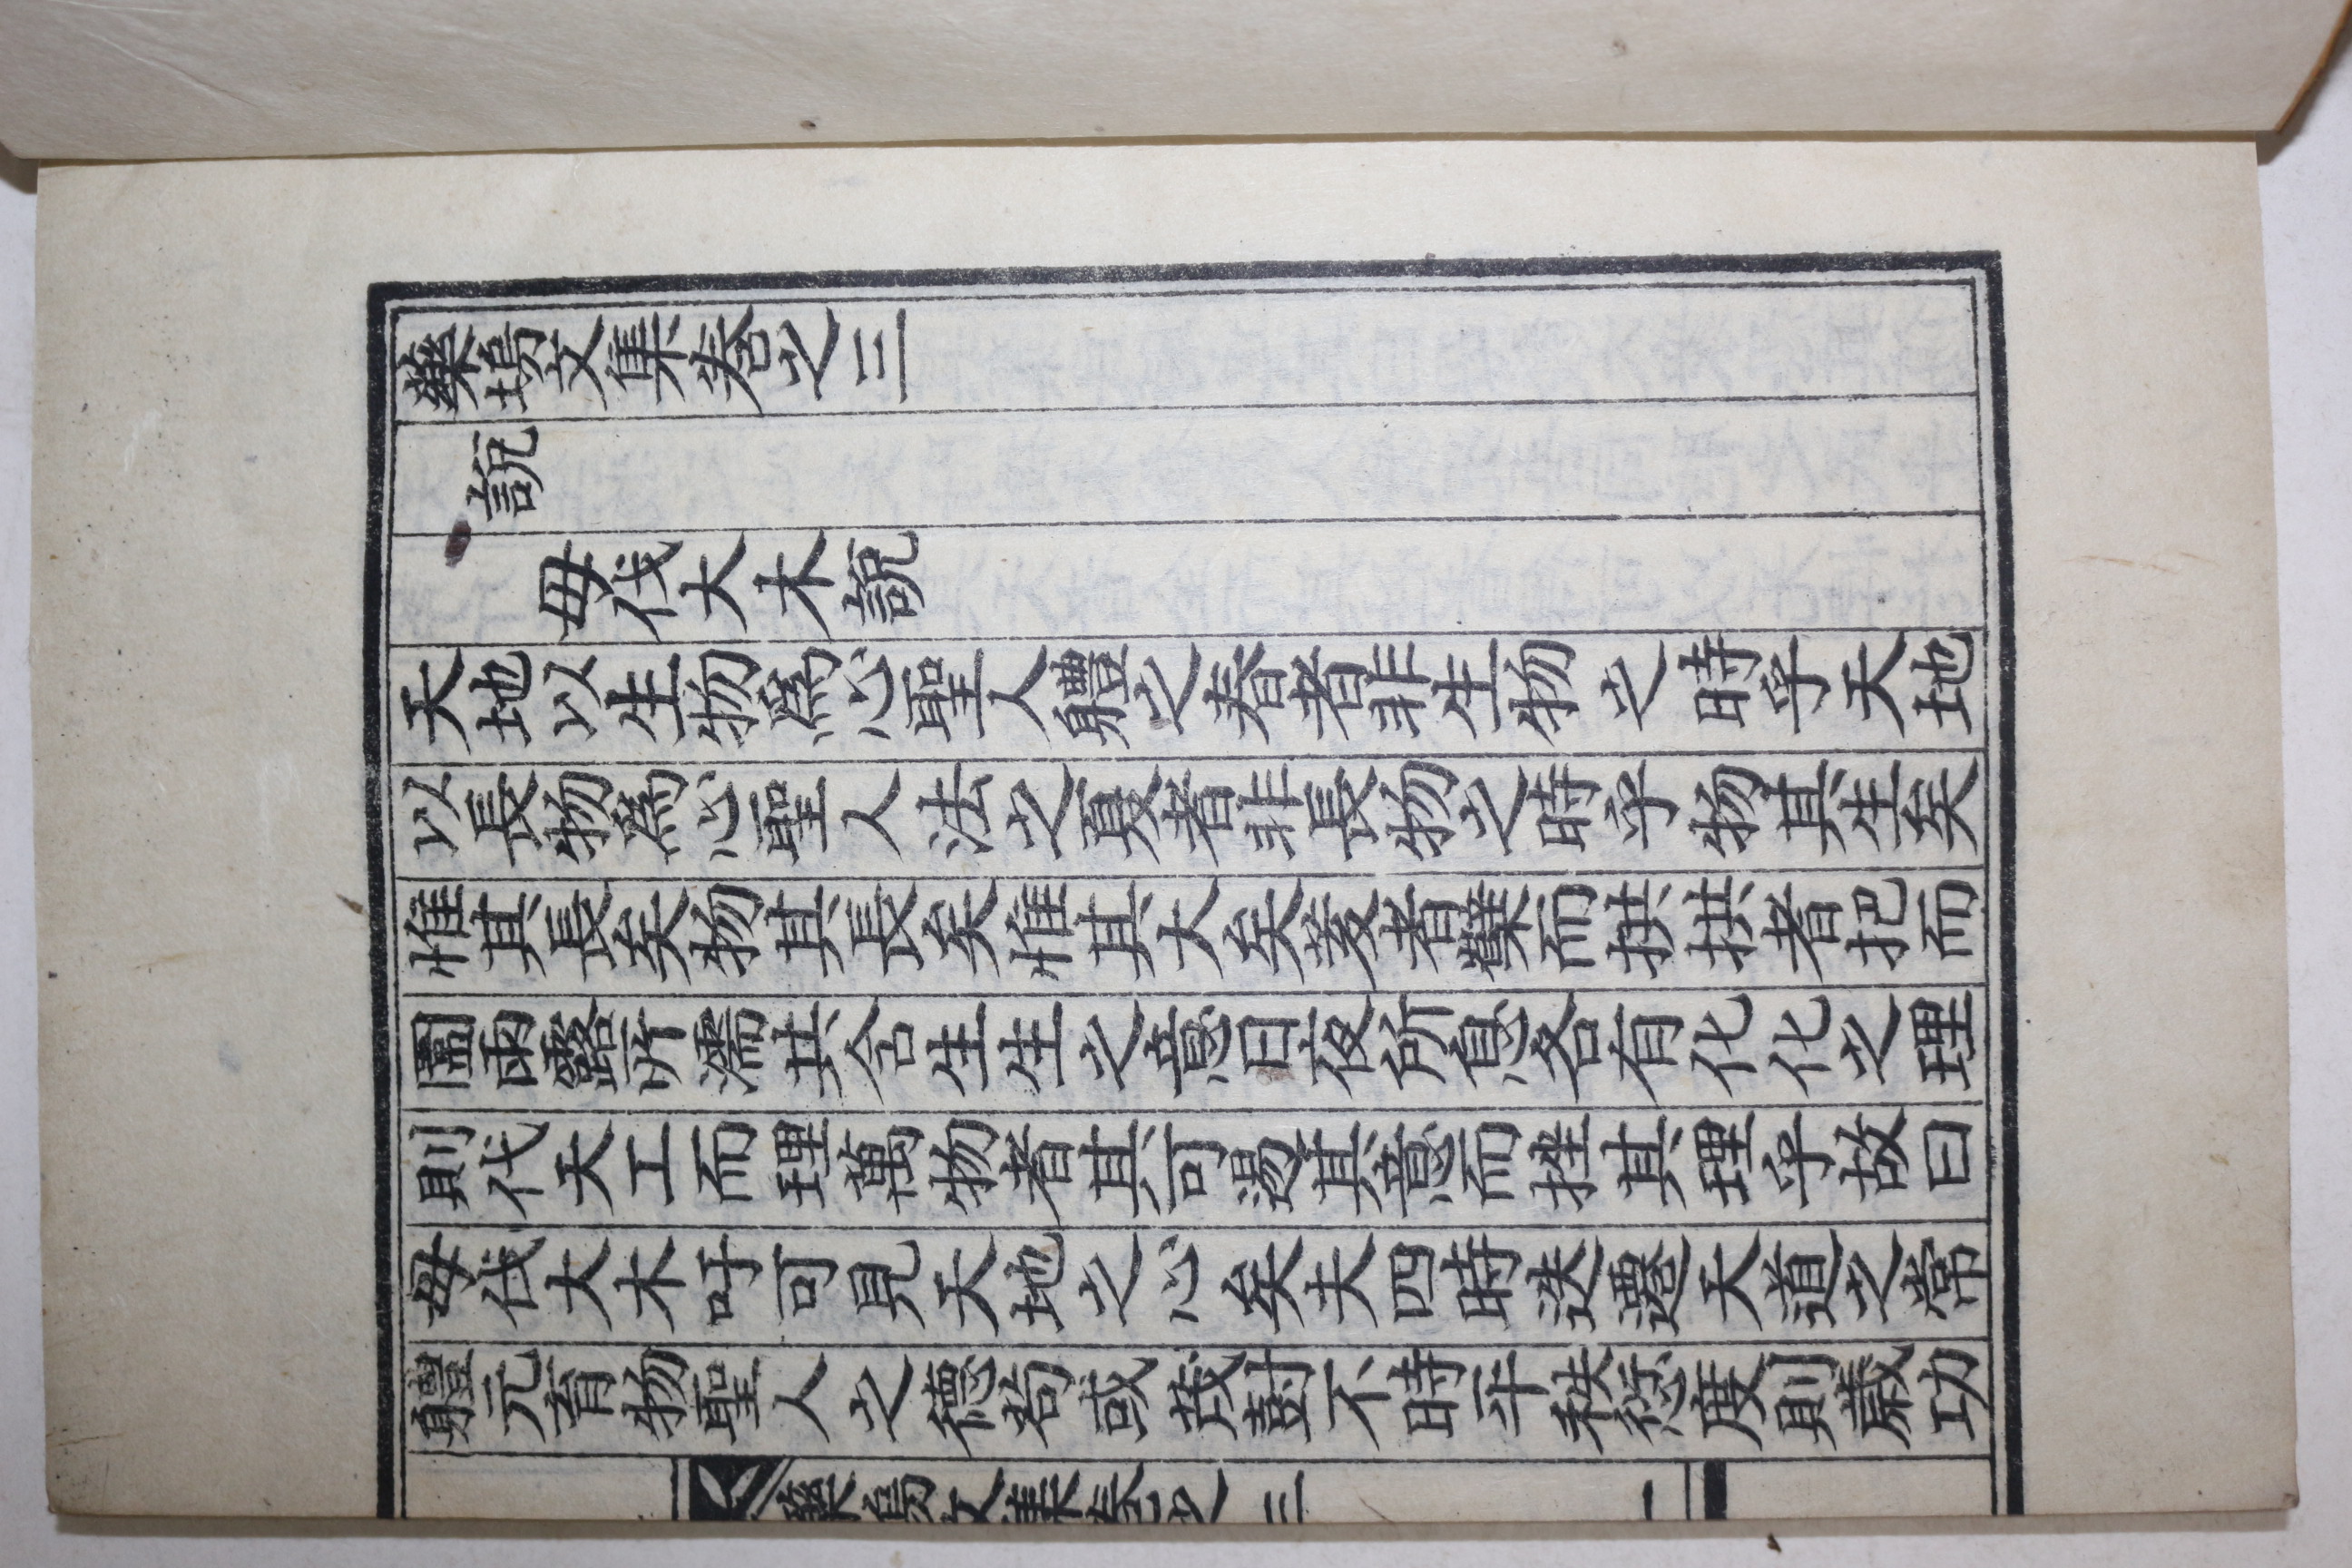 藥塢文集卷之三
說
毋伐大木說
天地以生物爲心聖人體之春者非生物之時乎天地
以長物爲心聖人法之夏者非長物之時乎物其生矣
惟其長矣物其長矣惟其大矣荄者櫱而拱拱者把而
圍雨露所濡共含生生之意日夜所息各有化化之理
則代天工而理萬物者其可遏其意而挫其理乎故曰
毋伐大木吁可見天地之心矣夫四時迭遷天道之常
軆元育物聖人之德苟或茂對不時平秩愆度則歲功
藥塢文集卷之三 一